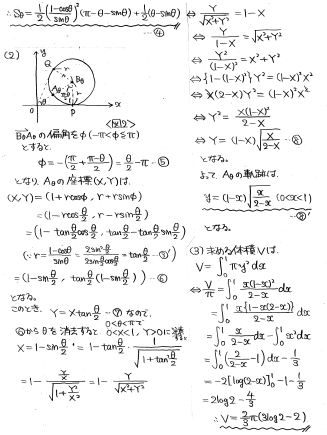 ∴ Sθ = 1/2 (1-cosθ/sinθ)² (π-θ-sinθ) + 1/2 (θ-sinθ) ‥④
(2)
y
Q
r
B₀
Aθ
0
θ
P
x
<図2>
B₀Aθ の偏角を φ (-π<φ≦π)
とすると、
φ = -(π/2 + (π-θ)/2) = θ/2 - π ‥⑤
となり、Aθの座標(X,Y)は、
(X,Y) = (1+rcosφ, r+rsinφ)
= (1-rcosθ/2, r-rsinθ/2)
= (1-tanθ/2 cosθ/2, tanθ/2 - tanθ/2 sinθ/2)
(∵ r = (1-cosθ)/sinθ = 2sin²θ/2 / 2sinθ/2 cosθ/2 = tanθ/2 ‥③')
= (1-sinθ/2, tanθ/2 (1-sinθ/2)) ‥⑥
となる。
このとき、 Y = X tanθ/2 ‥⑦ なので、
0<θ<πで
⑥から θ を消去すると 0<X<1, Y>0に注意
X = 1-sinθ/2 = 1-tanθ/2 · 1/√(1+tan²θ/2)
= 1 - (Y/X)/√(1+Y²/X²) = 1 - Y/√(X²+Y²)
⇔ Y/√(X²+Y²) = 1-X
⇔ Y/(1-X) = √(X²+Y²)
⇔ Y²/(1-X)² = X²+Y²
⇔ {1-(1-X)²}Y² = (1-X)²X²
⇔ X(2-X)Y² = (1-X)²X²
⇔ Y² = X(1-X)²/(2-X)
⇔ Y = (1-X)√(X/(2-X)) ‥⑧
となる。
よって、Aθの軌跡は、
y = (1-x)√(x/(2-x)) (0<x<1) ‥⑧'
となる。
(3) 求める体積Vは、
V = ∫₀¹ πy² dx
⇔ V/π = ∫₀¹ x(1-x)²/(2-x) dx
= ∫₀¹ x{1-x(2-x)}/(2-x) dx
= ∫₀¹ x/(2-x) dx - ∫₀¹ x² dx
= ∫₀¹ (2/(2-x) - 1) dx - 1/3
= -2[log(2-x)]₀¹ - 1 - 1/3
= 2log2 - 4/3
∴ V = 2/3 π(3log2-2)